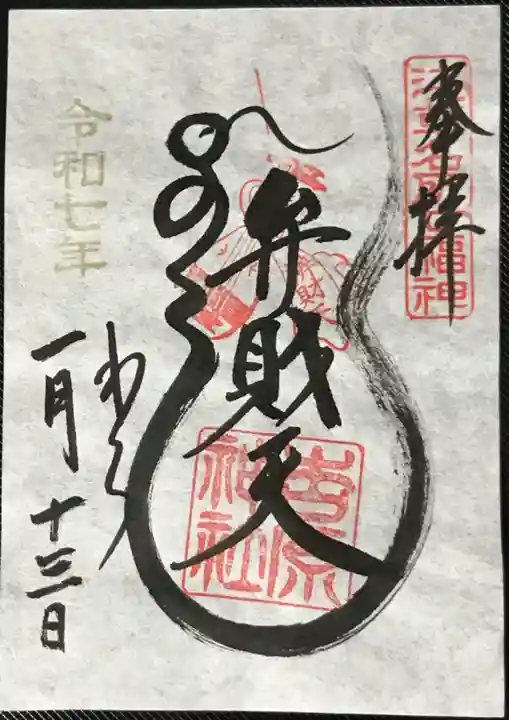 奉拝
浅草名所七福神
弁財天
吉原神社
令和七年
一月十三日